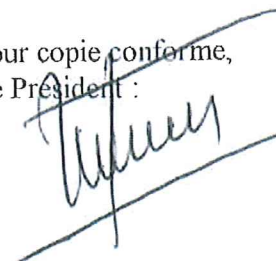 our copie conforme,
e Président :